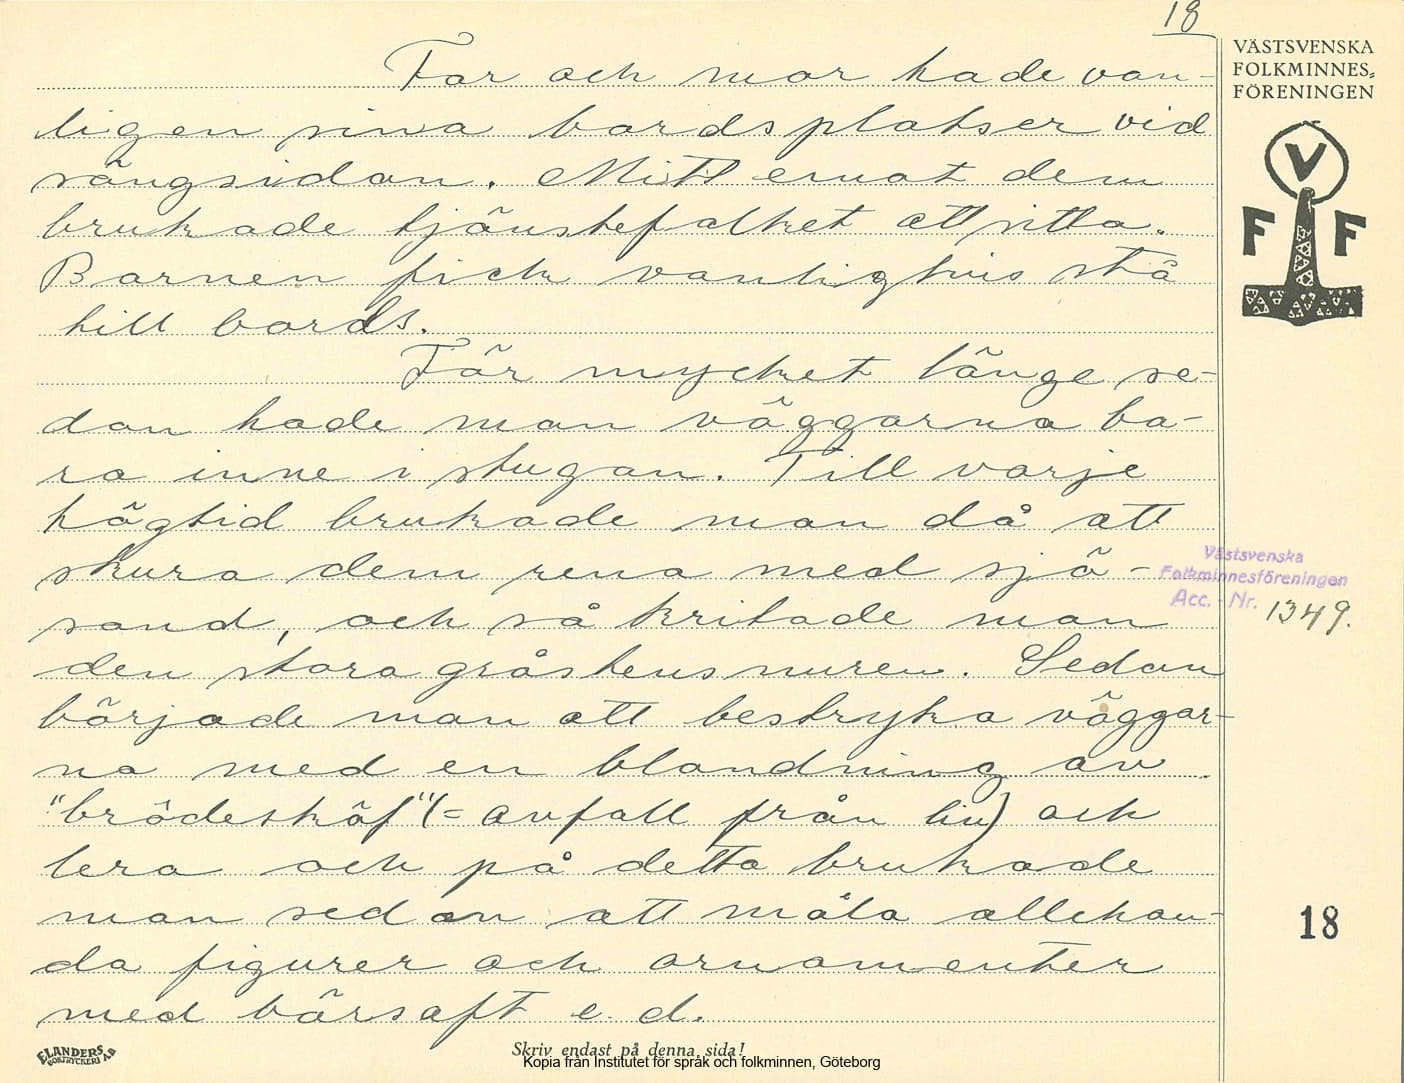 18
VÄSTSVENSKA
FOLKMINNES-
FÖRENINGEN
V
F F
Far och mor hade van-
ligen sina bordsplatser vid
sängsidan. Mitt emot dem
brukade tjänstefolket att sitta.
Barnen fick vanligtvis stå
till bords.
För mycket länge se-
dan hade man väggarna ba-
ra inne i stugan. Till varje
högtid brukade man då att
skura dem rena med sjö-
sand, och så kritade man
den stora gråstensmuren. Sedan
började man att bestryka väggar-
na med en blandning av
"brödeskäf" (= avfall från lin) och
lera och på detta brukade
man sedan att måla allehan-
da figurer och ornamenter
med bärsaft e. d.
Västsvenska
Folkminnesföreningen
Acc. - Nr. 1349.
18
ELANDERS
BOKTRYCKERI AB
Skriv endast på denna sida!
Kopia från Institutet för språk och folkminnen, Göteborg